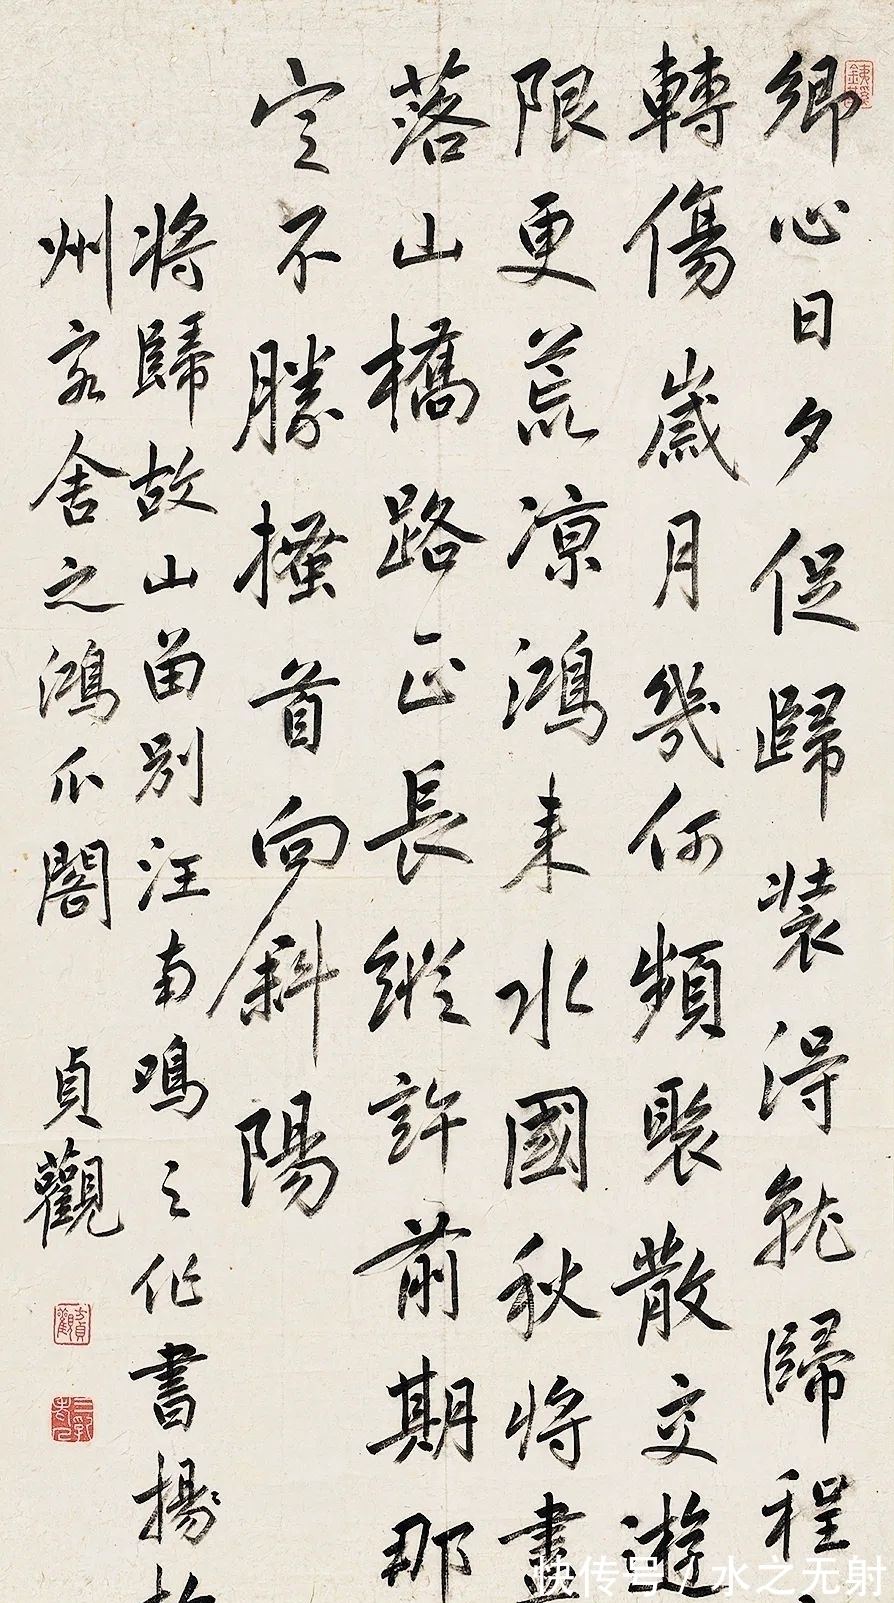 鄉心日夕促歸裝得就歸程
轉傷歲月幾何頻聚散交遊
限更荒涼鴻來水國秋將盡
落山橋路正長縱許前期那
定不勝搔首向斜陽
將歸故山留別汪南鳴之作書揚
州客舍之鴻爪閣 貞觀
貞觀
快传号/水之无射